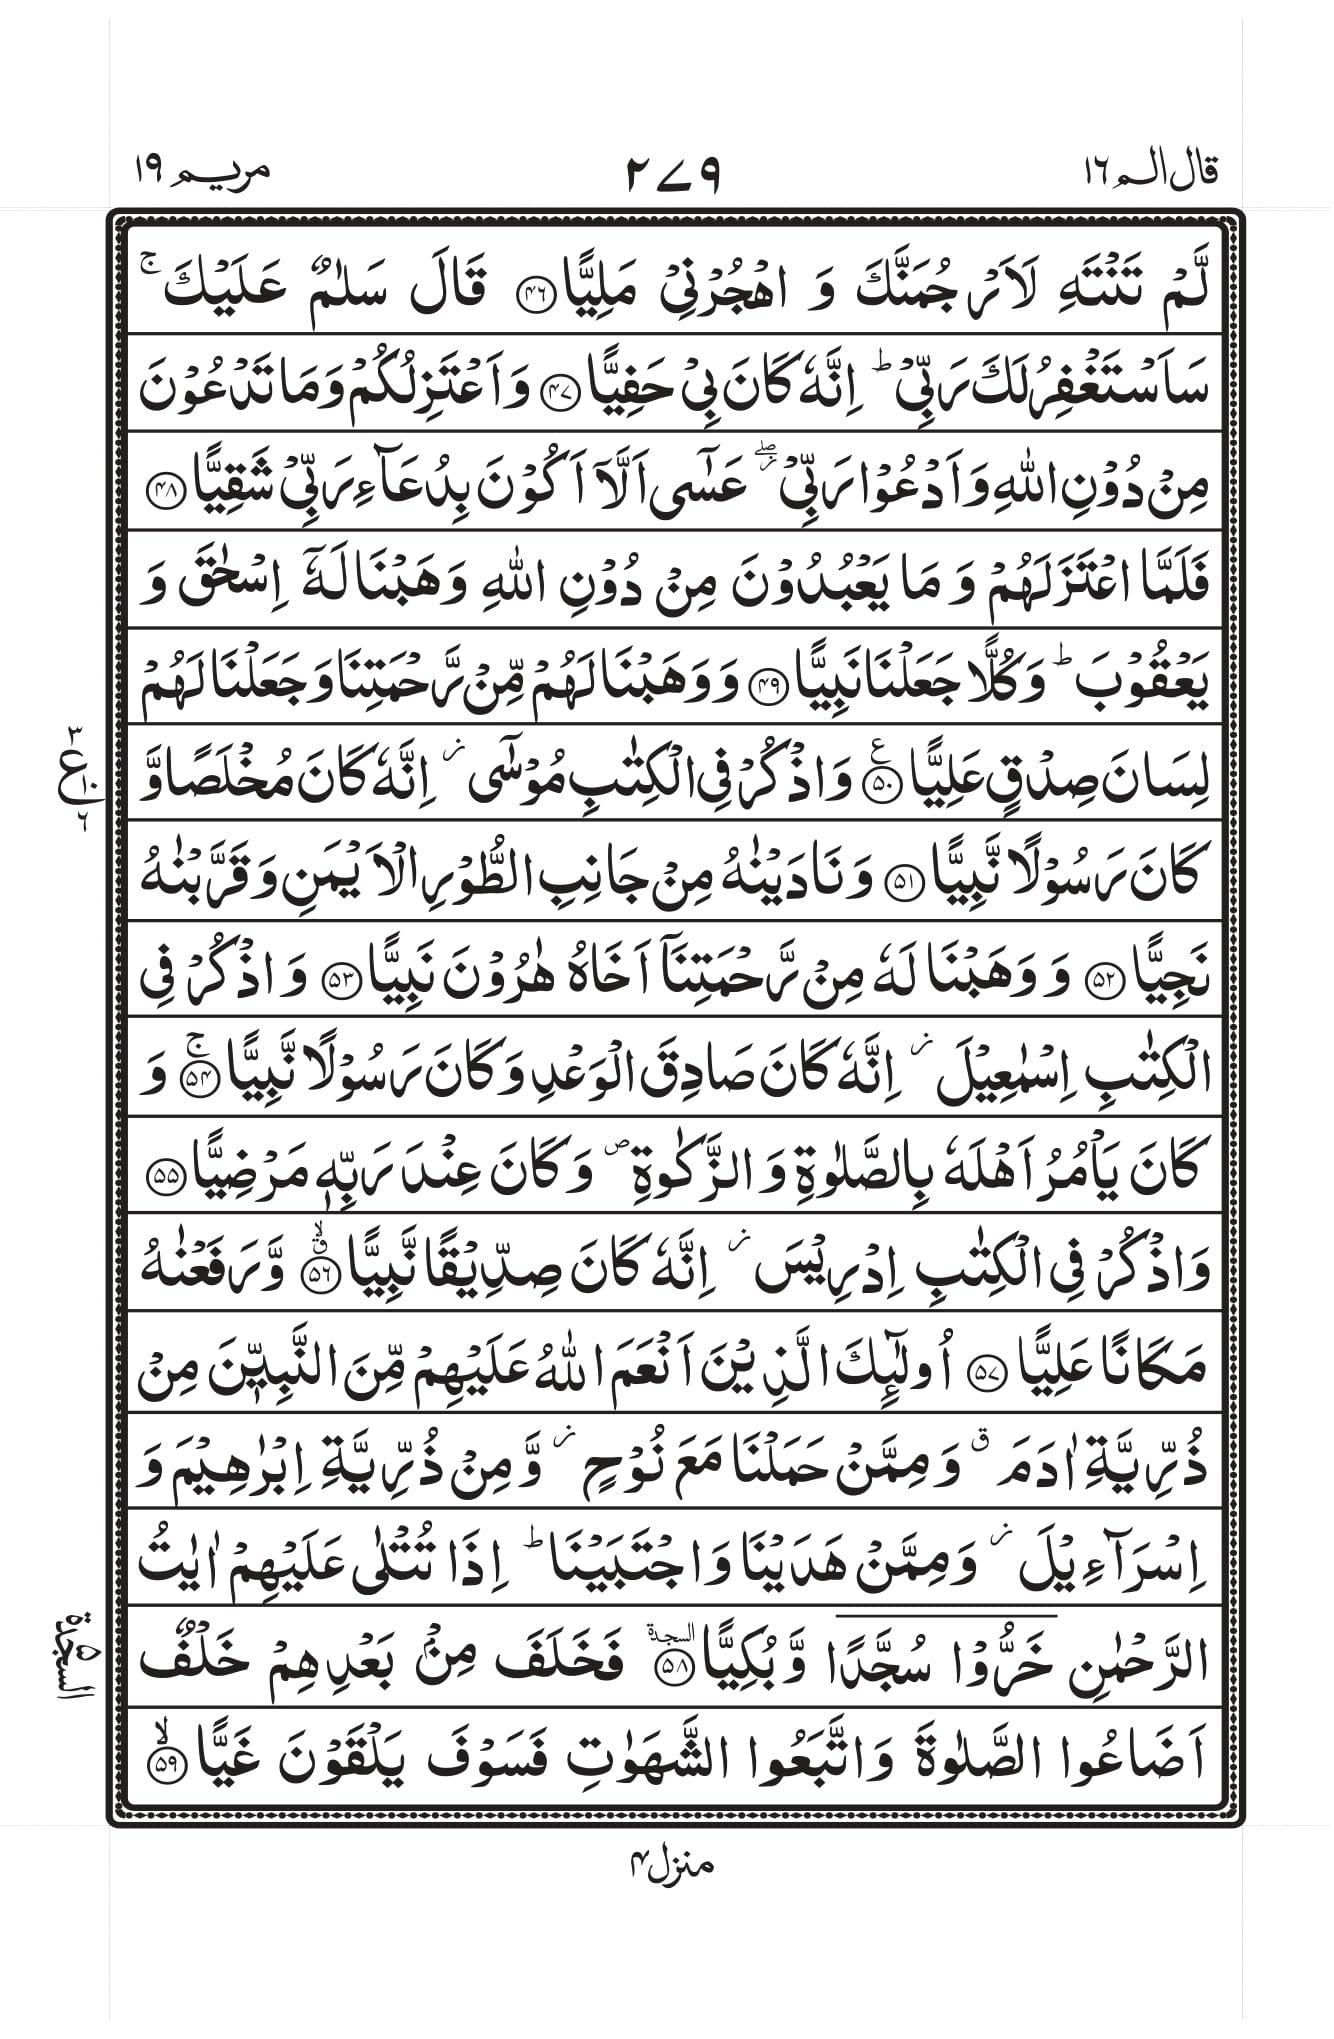 قال الم ١٦
٢٧٩
مريم ١٩
لَّمۡ تَنۡتَهِ لَاَرۡجُمَنَّكَ وَ اهۡجُرۡنِىۡ مَلِيًّا ﴿۴۶﴾ قَالَ سَلٰمٌ عَلَيۡكَ ۚ
سَاَسۡتَغۡفِرُ لَكَ رَبِّىۡ ؕ اِنَّهٗ كَانَ بِىۡ حَفِيًّا ﴿۴۷﴾ وَ اَعۡتَزِلُكُمۡ وَ مَا تَدۡعُوۡنَ
مِنۡ دُوۡنِ اللّٰهِ وَ اَدۡعُوۡا رَبِّىۡ ۖز عَسٰٓى اَلَّاۤ اَكُوۡنَ بِدُعَآءِ رَبِّىۡ شَقِيًّا ﴿۴۸﴾
فَلَمَّا اعۡتَزَلَهُمۡ وَ مَا يَعۡبُدُوۡنَ مِنۡ دُوۡنِ اللّٰهِ وَهَبۡنَا لَهٗۤ اِسۡحٰقَ وَ
يَعۡقُوۡبَ ؕ وَ كُلًّا جَعَلۡنَا نَبِيًّا ﴿۴۹﴾ وَ وَهَبۡنَا لَهُمۡ مِّنۡ رَّحۡمَتِنَا وَ جَعَلۡنَا لَهُمۡ
لِسَانَ صِدۡقٍ عَلِيًّا ﴿۵۰﴾ ع وَ اذۡكُرۡ فِى الۡكِتٰبِ مُوۡسٰٓى ز اِنَّهٗ كَانَ مُخۡلَصًا وَّ
٣ ع ١٠ ٦
كَانَ رَسُوۡلًا نَّبِيًّا ﴿۵۱﴾ وَ نَادَيۡنٰهُ مِنۡ جَانِبِ الطُّوۡرِ الۡاَيۡمَنِ وَ قَرَّبۡنٰهُ
نَجِيًّا ﴿۵۲﴾ وَ وَهَبۡنَا لَهٗ مِنۡ رَّحۡمَتِنَاۤ اَخَاهُ هٰرُوۡنَ نَبِيًّا ﴿۵۳﴾ وَ اذۡكُرۡ فِى
الۡكِتٰبِ اِسۡمٰعِيۡلَ ز اِنَّهٗ كَانَ صَادِقَ الۡوَعۡدِ وَ كَانَ رَسُوۡلًا نَّبِيًّا ﴿۵۴﴾ ۚ وَ
كَانَ يَاۡمُرُ اَهۡلَهٗ بِالصَّلٰوةِ وَ الزَّكٰوةِ ص وَ كَانَ عِنۡدَ رَبِّهٖ مَرۡضِيًّا ﴿۵۵﴾
وَ اذۡكُرۡ فِى الۡكِتٰبِ اِدۡرِيۡسَ ز اِنَّهٗ كَانَ صِدِّيۡقًا نَّبِيًّا ﴿۵۶﴾ ق ۙ وَّ رَفَعۡنٰهُ
مَكَانًا عَلِيًّا ﴿۵۷﴾ اُولٰٓئِكَ الَّذِيۡنَ اَنۡعَمَ اللّٰهُ عَلَيۡهِمۡ مِّنَ النَّبِيّٖنَ مِنۡ
ذُرِّيَّةِ اٰدَمَ ق وَ مِمَّنۡ حَمَلۡنَا مَعَ نُوۡحٍ ز وَّ مِنۡ ذُرِّيَّةِ اِبۡرٰهِيۡمَ وَ
اِسۡرَآءِيۡلَ ز وَ مِمَّنۡ هَدَيۡنَا وَ اجۡتَبَيۡنَا ؕ اِذَا تُتۡلٰى عَلَيۡهِمۡ اٰيٰتُ
الرَّحۡمٰنِ خَرُّوۡا سُجَّدًا وَّ بُكِيًّا ﴿۵۸﴾ السجدة فَخَلَفَ مِنۡۢ بَعۡدِهِمۡ خَلۡفٌ
السجدة ۵
اَضَاعُوا الصَّلٰوةَ وَ اتَّبَعُوا الشَّهَوٰتِ فَسَوۡفَ يَلۡقَوۡنَ غَيًّا ﴿۵۹﴾ ۙ
منزل ۴